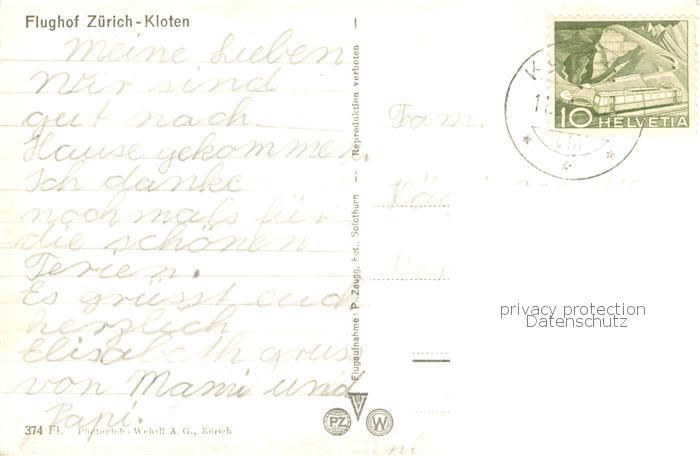 Flughof Zürich-Kloten
Meine Lieben
Wir sind
gut nach
Hause gekommen.
Ich danke
nochmals für
die schönen
Ferien.
Es grüsst euch
herzlich
Elisabeth grus
von Mami und
Papi.
374 Fl. Photoglob-Wehrli A. G., Zürich
Flugaufnahme: P. Zaugg, Fot., Solothurn -- Reproduktion verboten
PZ
W
Fam.
10 HELVETIA
VIII
privacy protection
Datenschutz